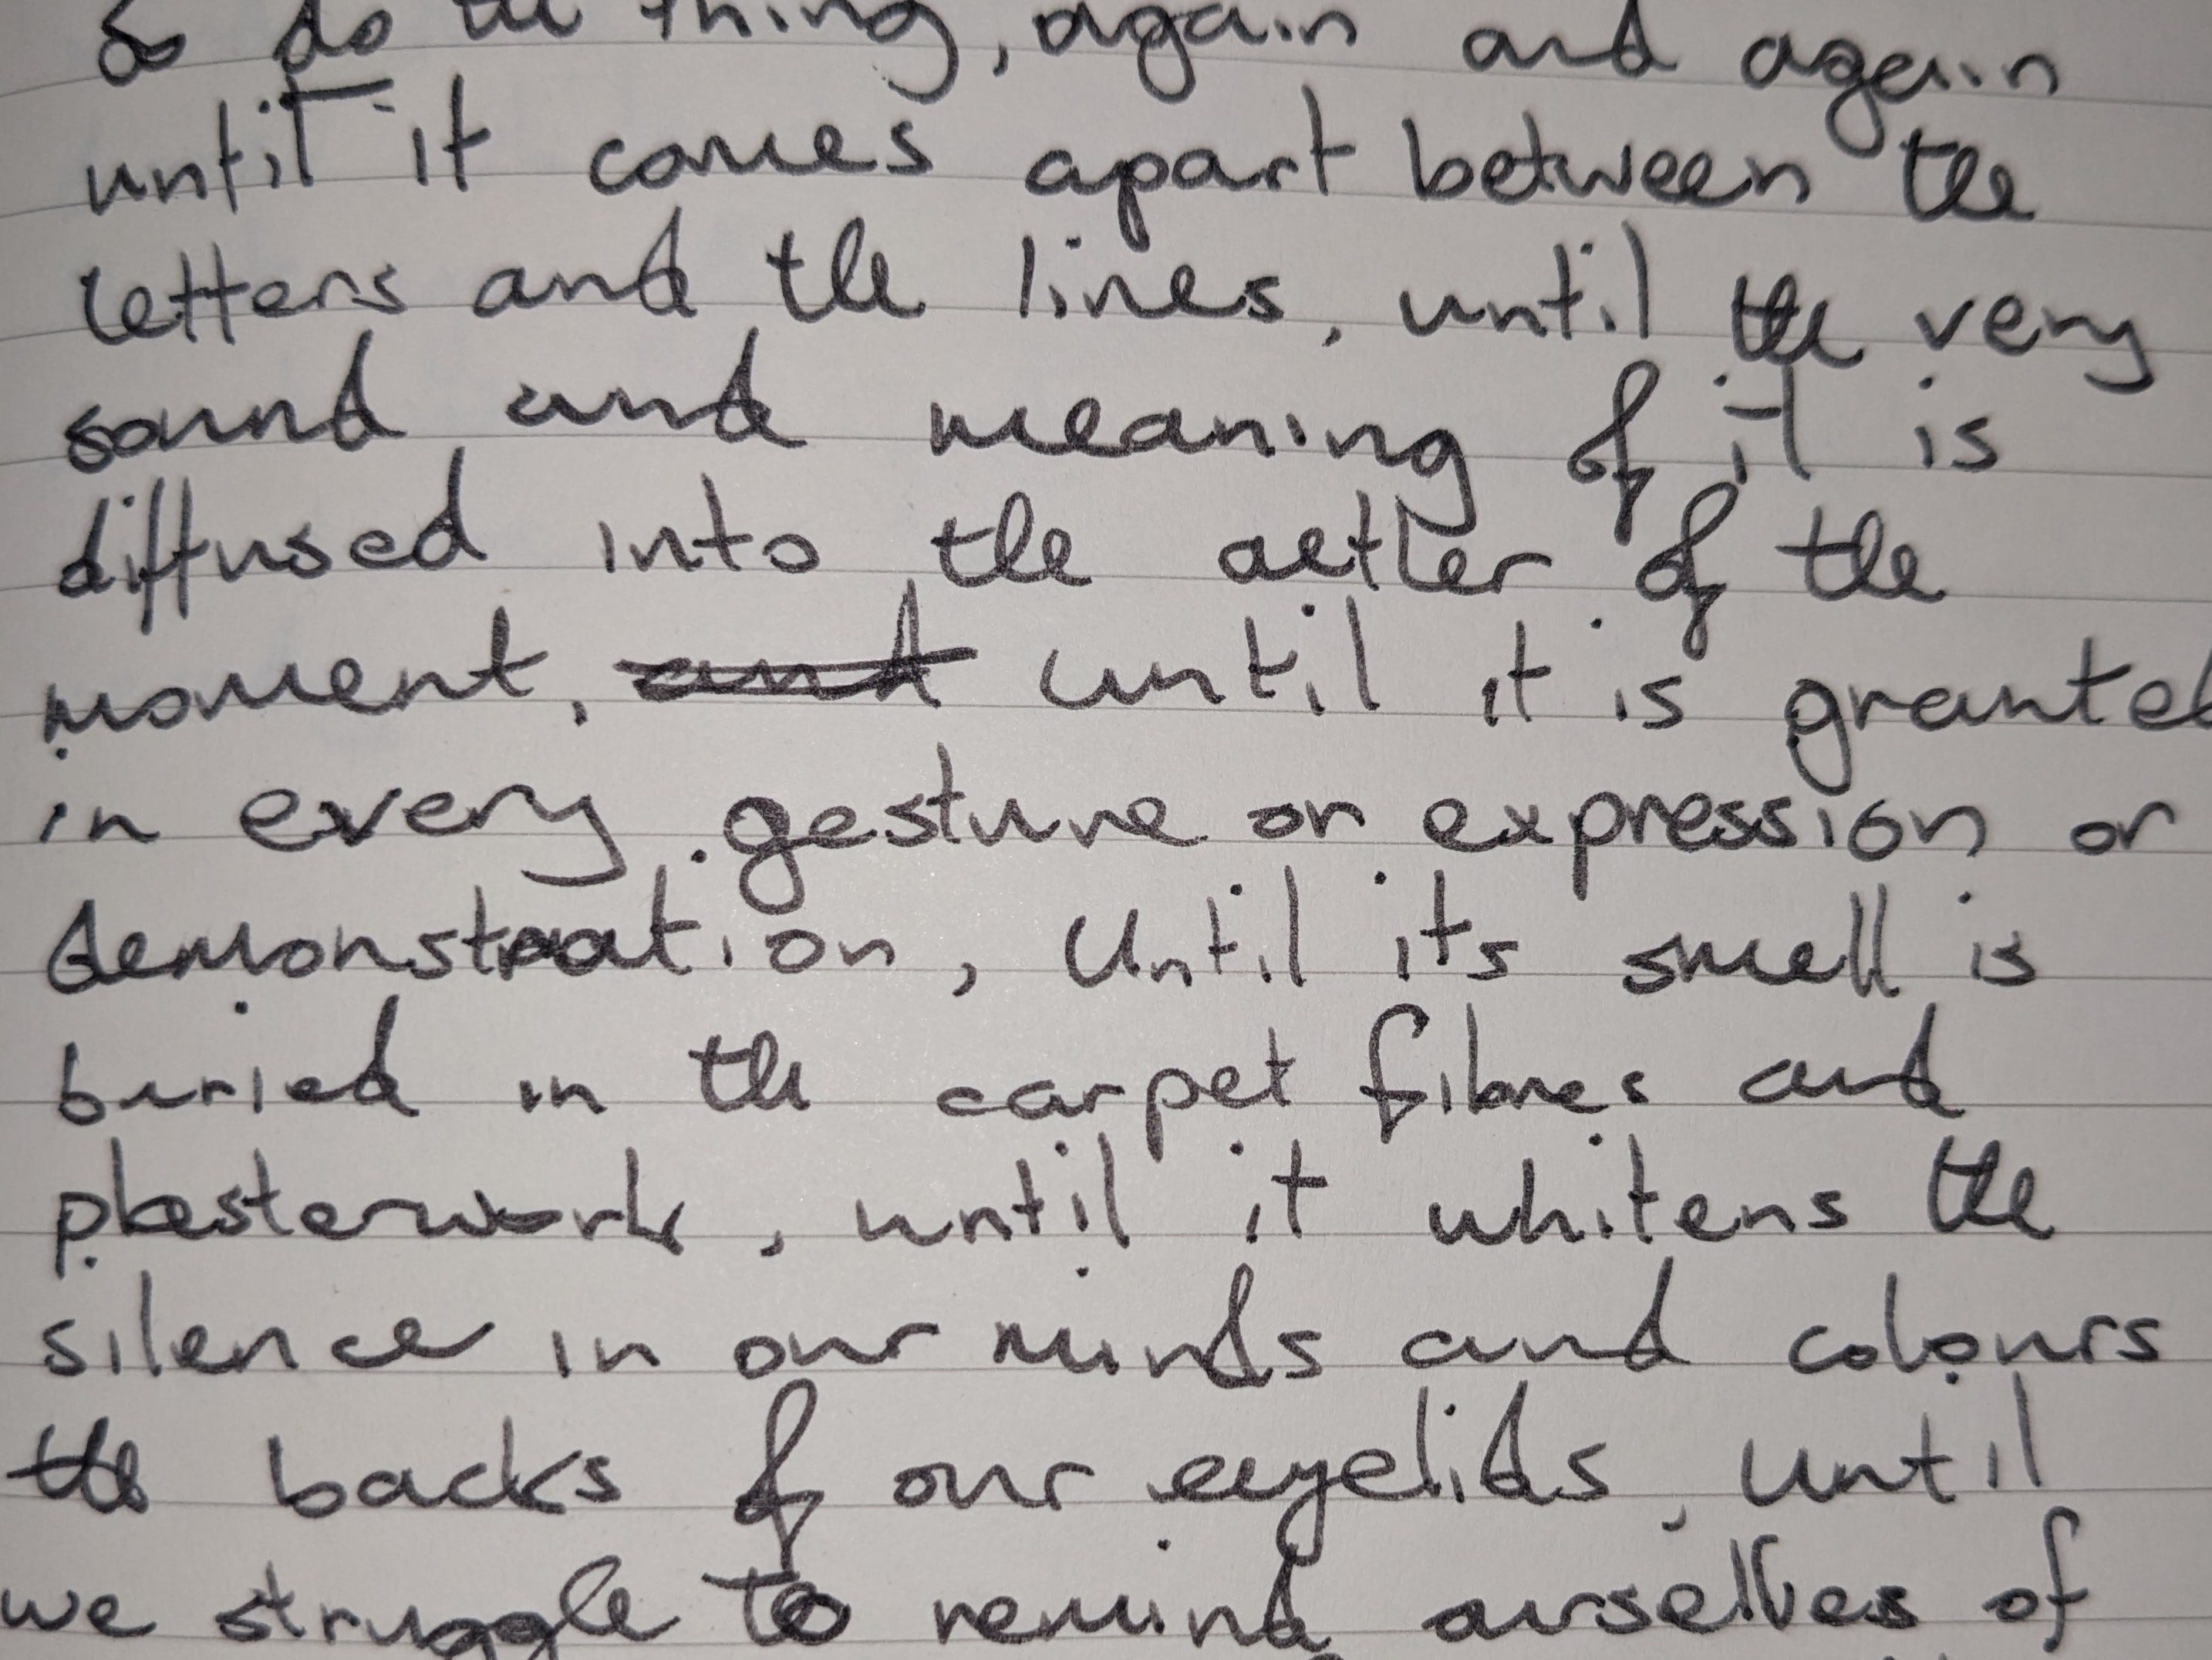 So do the thing, again and again
until it comes apart between the
letters and the lines, until the very
sound and meaning of it is
diffused into the aether of the
moment, and until it is granted
in every gesture or expression or
demonstration, until its smell is
buried in the carpet fibres and
plasterwork, until it whitens the
silence in our minds and colours
the backs of our eyelids, until
we struggle to remind ourselves of